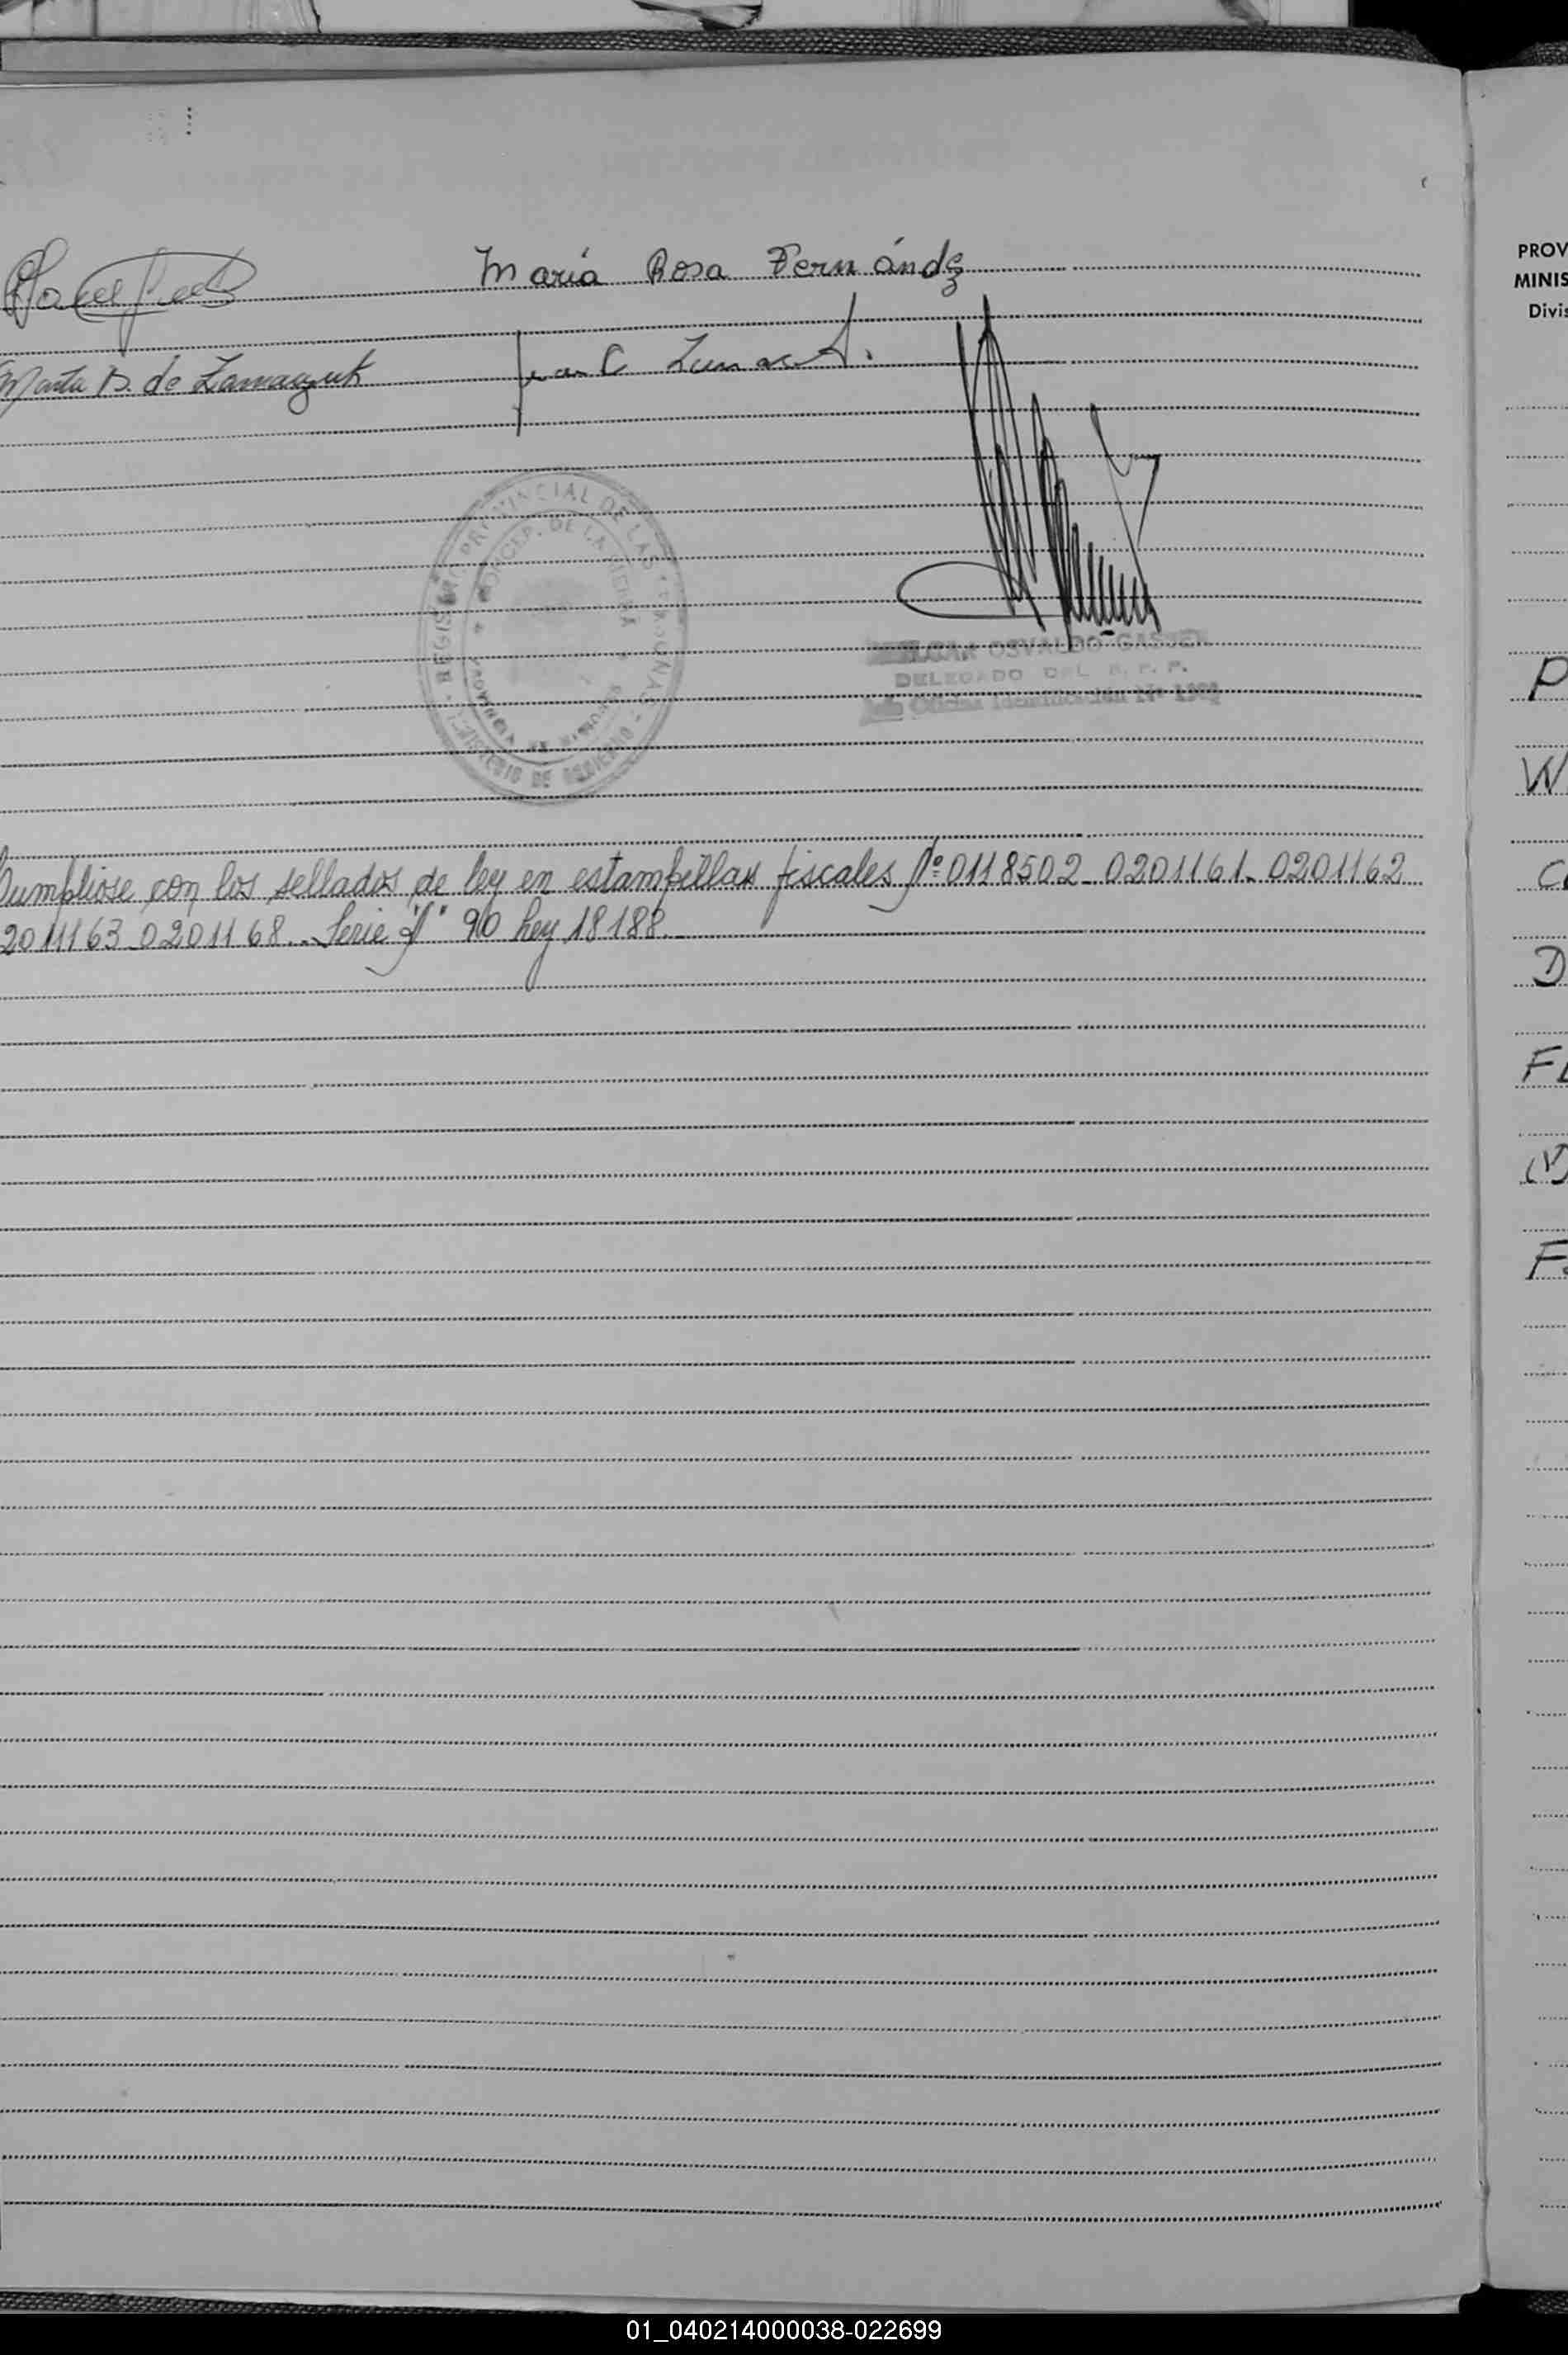 María Rosa Fernández
Marta B. de Zamaszuk
Juan C
REGISTRO PROVINCIAL DE LAS PERSONAS - MINISTERIO DE GOBIERNO
CONCEP. DE LA SIERRA
PROVINCIA DE MISIONES
OSVALDO
DELEGADO DEL R. P. P.
Oficina Identificación Nº
Cumpliose con los sellados de ley en estampillas fiscales Nº 0118502 - 0201161 - 0201162
2011163 - 0201168. - Serie "A" 90 Ley 18188. -
PROV
MINIS
Divis
P
W
C
D
F
(V)
F
01_040214000038-022699